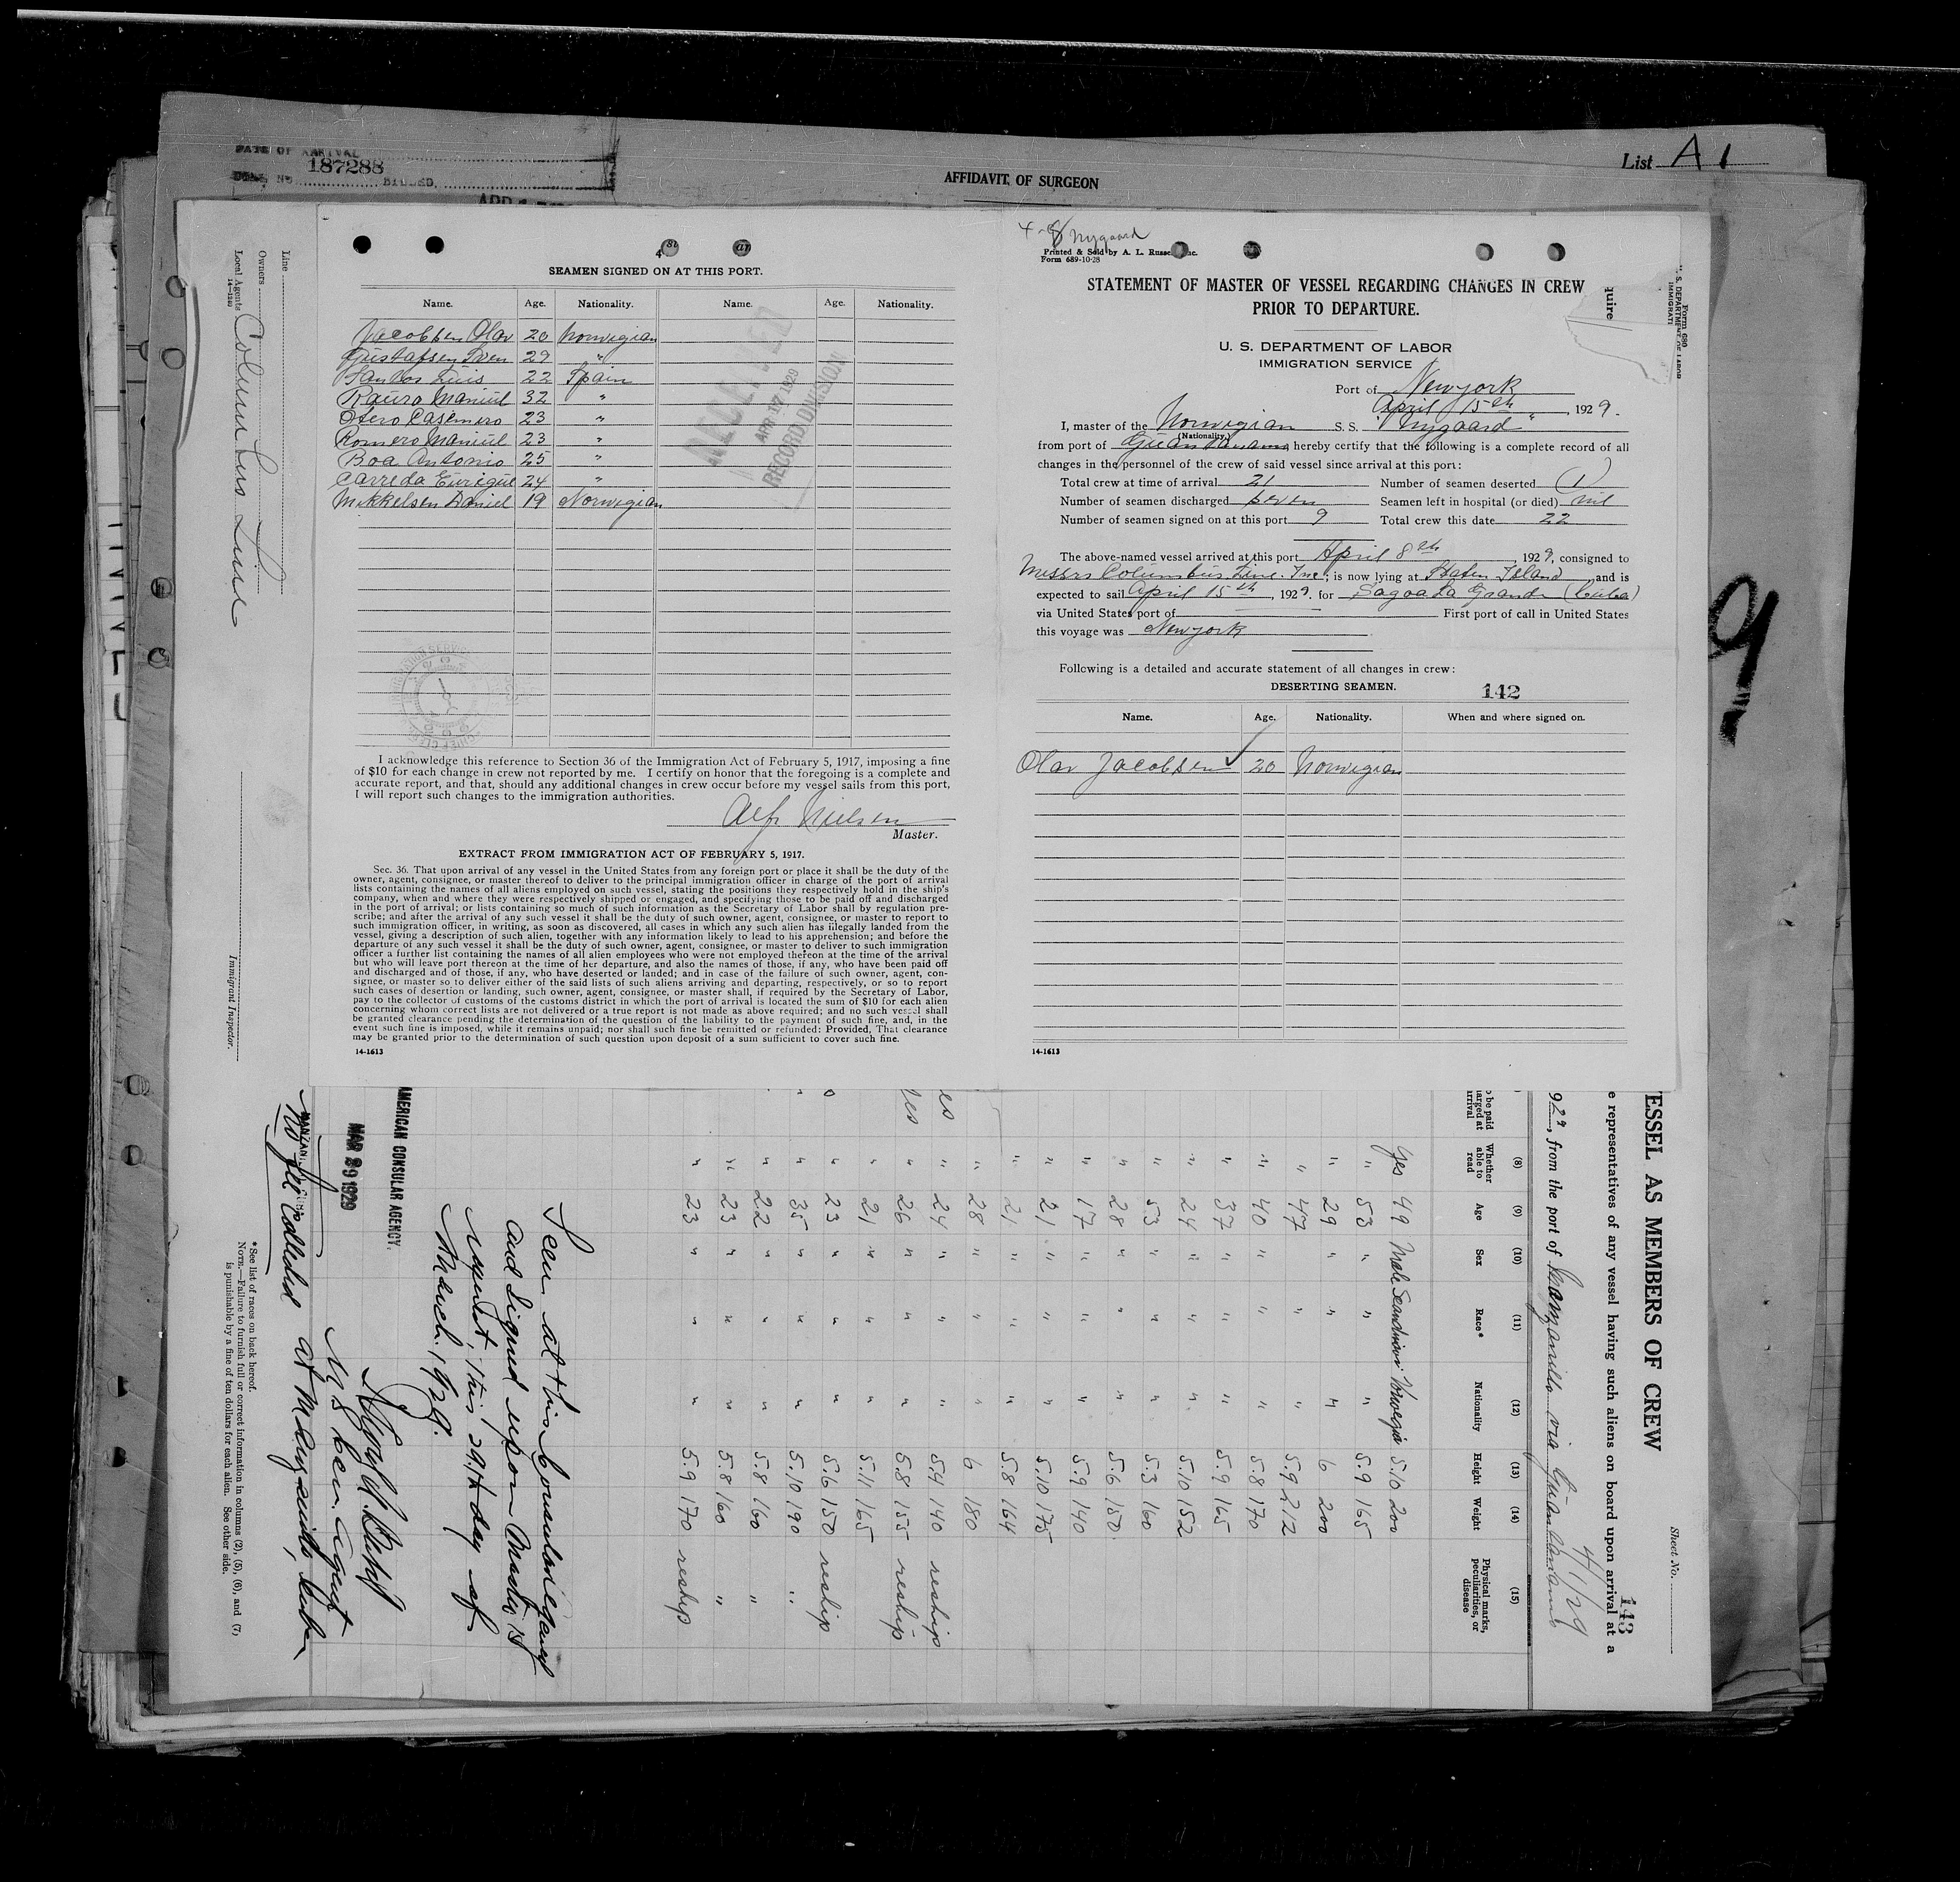 DATE OF ARRIVAL
187288
BILLED
AFFIDAVIT OF SURGEON
List A 1
Line
Owners
Local Agents Columbus Line
14-1240
Immigrant Inspector.
4
SEAMEN SIGNED ON AT THIS PORT.
Name. Age. Nationality. Name. Age. Nationality.
Jacobsen Olav 20 Norwegian
Gustafsen Sven 29 "
Santos Luis 22 Spain
Rauro Manuel 32 "
Otero Casemiro 23 "
Romero Manuel 23 "
Boa Antonio 25 "
Carreda Enrique 24 "
Mikkelsen Daniel 19 Norwegian
RECEIVED
APR 17 1929
RECORD DIVISION
I acknowledge this reference to Section 36 of the Immigration Act of February 5, 1917, imposing a fine
of $10 for each change in crew not reported by me. I certify on honor that the foregoing is a complete and
accurate report, and that, should any additional changes in crew occur before my vessel sails from this port,
I will report such changes to the immigration authorities.
Alf Nielsen
Master.
EXTRACT FROM IMMIGRATION ACT OF FEBRUARY 5, 1917.
Sec. 36. That upon arrival of any vessel in the United States from any foreign port or place it shall be the duty of the
owner, agent, consignee, or master thereof to deliver to the principal immigration officer in charge of the port of arrival
lists containing the names of all aliens employed on such vessel, stating the positions they respectively hold in the ship's
company, when and where they were respectively shipped or engaged, and specifying those to be paid off and discharged
in the port of arrival; or lists containing so much of such information as the Secretary of Labor shall by regulation pre-
scribe; and after the arrival of any such vessel it shall be the duty of such owner, agent, consignee, or master to report to
such immigration officer, in writing, as soon as discovered, all cases in which any such alien has illegally landed from the
vessel, giving a description of such alien, together with any information likely to lead to his apprehension; and before the
departure of any such vessel it shall be the duty of such owner, agent, consignee, or master to deliver to such immigration
officer a further list containing the names of all alien employees who were not employed thereon at the time of the arrival
but who will leave port thereon at the time of her departure, and also the names of those, if any, who have been paid off
and discharged and of those, if any, who have deserted or landed; and in case of the failure of such owner, agent, con-
signee, or master so to deliver either of the said lists of such aliens arriving and departing, respectively, or so to report
such cases of desertion or landing, such owner, agent, consignee, or master shall, if required by the Secretary of Labor,
pay to the collector of customs of the customs district in which the port of arrival is located the sum of $10 for each alien
concerning whom correct lists are not delivered or a true report is not made as above required; and no such vessel shall
be granted clearance pending the determination of the question of the liability to the payment of such fine, and, in the
event such fine is imposed, while it remains unpaid; nor shall such fine be remitted or refunded: Provided, That clearance
may be granted prior to the determination of such question upon deposit of a sum sufficient to cover such fine.
14-1613
4-8 Nygaard
Printed & Sold by A. L. Russell Inc.
Form 689-10-28
STATEMENT OF MASTER OF VESSEL REGARDING CHANGES IN CREW
PRIOR TO DEPARTURE.
U. S. DEPARTMENT OF LABOR
IMMIGRATION SERVICE
Port of New york
April 15th, 1929.
I, master of the Norwegian S. S. "Nygaard"
(Nationality)
from port of Guantanamo, hereby certify that the following is a complete record of all
changes in the personnel of the crew of said vessel since arrival at this port:
Total crew at time of arrival 21 Number of seamen deserted (1)
Number of seamen discharged seven Seamen left in hospital (or died) nil
Number of seamen signed on at this port 9 Total crew this date 22
The above-named vessel arrived at this port April 8th, 1929, consigned to
Messrs Columbus Line. Inc; is now lying at Staten Island and is
expected to sail April 15th, 1929. for Sagoa La Grande (Cuba)
via United States port of First port of call in United States
this voyage was New york
Following is a detailed and accurate statement of all changes in crew:
DESERTING SEAMEN. 142
Name. Age. Nationality. When and where signed on.
Olav Jacobsen 20 Norwegian
14-1613
Form 680
U. S. DEPARTMENT OF LABOR
IMMIGRATI
quire
9
Sheet No.
143
ESSEL AS MEMBERS OF CREW
e representatives of any vessel having such aliens on board upon arrival at a
4/1/29
929, from the port of Manzanillo via Guantanamo
(8) (9) (10) (11) (12) (13) (14) (15)
Whether able to read Age Sex Race* Nationality Height Weight Physical marks, peculiarities, or disease
Yes 49 Male Scandinavi Norwegia 5.10 200
" 53 " " " 5.9 165
" 29 " " " 6 200
" 47 " " 5.9 212
" 40 " " " 5.8 170
" 37 " " " 5.9 165
" 24 " " " 5.10 152
" 53 " " " 5.3 160
" 28 " " " 5.6 150.
" 17 " " " 5.9 140
" 21 " " " 5.10 175
" 21 " " " 5.8 164
" 28 " " " 6 180
es " 24 " " " 5.4 140 reship
yes " 26 " " " 5.8 155 reship
" 21 " " " 5.11 165
" 23 " " " 5.6 150 reship
" 35 " " " 5.10 190 "
" 22 " " " 5.8 160 "
" 23 " " " 5.8 160 "
" 23 " " " 5.9 170 reship
Seen at this Consular Agency
and signed upon Master's
request, this 29th day of
March. 1929.
U S Con. Agent
AMERICAN CONSULAR AGENCY.
MAR 29 1929
No fee Collected at Manzanillo, Cuba
* See list of races on back hereof.
NOTE.—Failure to furnish full or correct information in columns (2), (5), (6), and (7)
is punishable by a fine of ten dollars for each alien. See other side.